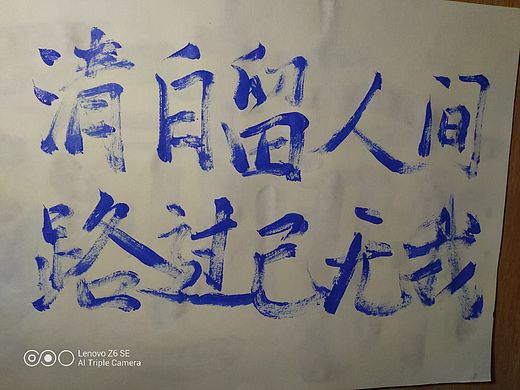 清自留人间
路过已无我
Lenovo Z6 SE
AI Triple Camera